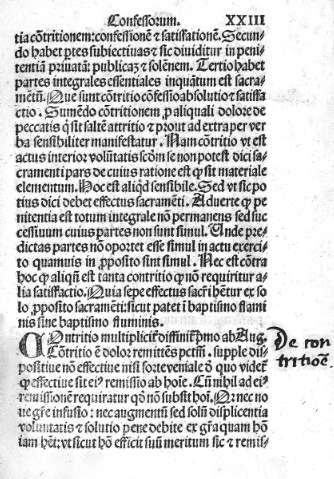 Confessorum. XXIII
tia cõtritionem: confessionẽ & satisfationẽ. Secun-
do habet ꝑtes subiectiuas & sic diuiditur in peni-
tentiã priuatã: publicaʒ & solẽnem. Tertio habet
partes integrales essentiales inquãtum est sacra-
mẽtũ. Que sunt cõtritio cõfessio absolutio & satisfa
ctio. Sumẽdo cõtritionem ꝓ aliquali dolore de
peccatis qͥ sit saltẽ attritio & prout ad extra per ver
ba sensibiliter manifestatur. Nam cõtritio vt est
actus interior volũtatis scðm se non potest dici sa-
cramenti pars de cuius ratione est ꝙ sit materiale
elementum. Hoc est aliqͥd sensibile. Sed vt sic po
tius dici debet effectus sacramẽti. Aduerte ꝙ pe
nitentia est totum integrale nõ permanens sed suc
cessiuum cuius partes non sunt simul. Unde pre-
dictas partes nõ oportet esse simul in actu exerci-
to quamuis in ꝓposito sint simul. Nec est cõtra
hoc ꝙ aliqñ est tanta contritio ꝙ nõ requiritur a-
lia satisfactio. Quia sepe effectus sacrĩ hẽtur ex so
lo ꝓposito sacramẽti: sicut patet ĩ baptismo flami
nis sine baptismo fluminis.
COntritio multiplicit͛ diffinit͛ pmo ab Aug.
Cõtritio ẽ dolor remittẽs petm̃. supple dis
positiue nõ effectiue nisi for̃ te veniale qð quo videt͛
ꝙ effectiue sit eiꝰ remissio ab hoĩe. Cũ nihil ad eiꝰ
remissionẽ requiratur qð nõ subsit hoĩ.
nec augmentũ sed solũ displicentia
voluntatis & solutio pene debite ex gr̃a quam hõ
iam hẽt: vt sicut hõ efficit suũ meritum sic & remis-
De con
tritiõe